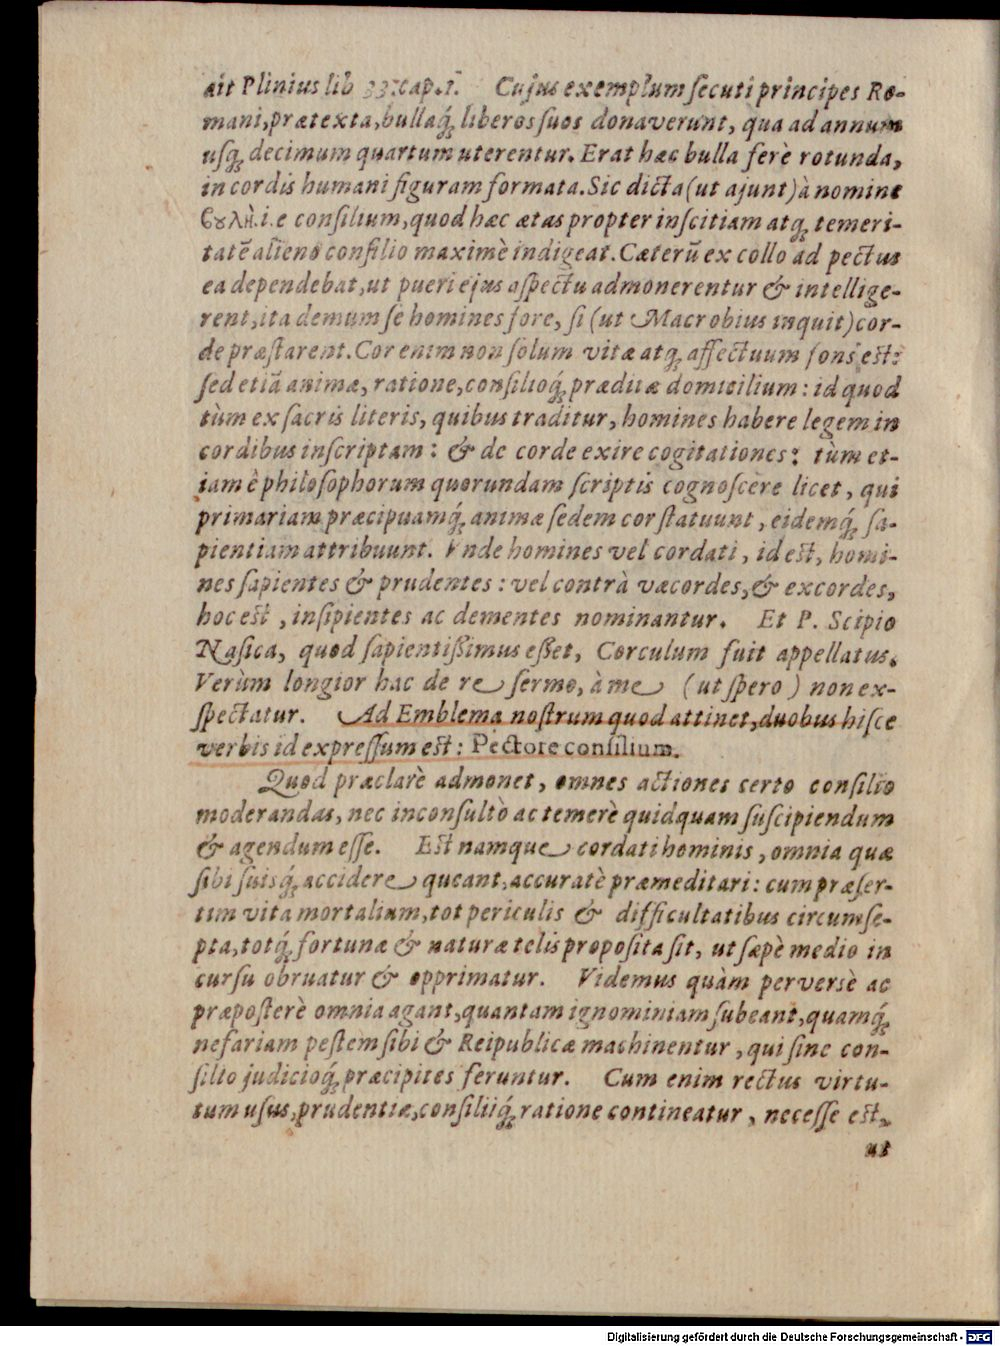 ait Plinius lib 33. cap. 1. Cujus exemplum ſecuti principes Ro-
mani, prætexta, bullaq́; liberos ſuos donaverunt, qua ad annum
uſq; decimum quartum uterentur. Erat hæc bulla ferè rotunda,
in cordis humani figuram formata. Sic dicta (ut ajunt) à nomine
βȣλὴ. i. e conſilium, quod hæc ætas propter inſcitiam atq; temeri-
tatē alieno conſilio maximè indigeat. Cæterū ex collo ad pectus
ea dependebat, ut pueri ejus aſpectu admonerentur & intellige-
rent, ita demum ſe homines fore, ſi (ut Macrobius inquit) cor-
de præſtarent. Cor enim non ſolum vitæ atq; affectuum fons est:
ſed etiā animæ, ratione, conſilioq́; præditæ domicilium: id quod
tùm ex ſacris literis, quibus traditur, homines habere legem in
cordibus inſcriptam: & de corde exire cogitationes: tùm et-
iam è philoſophorum quorundam ſcriptis cognoſcere licet, qui
primariam præcipuamq́; animæ ſedem cor ſtatuunt, eidemq́; ſa-
pientiam attribuunt. Vnde homines vel cordati, id est, homi-
nes ſapientes & prudentes: vel contrà væcordes, & excordes,
hoc est, inſipientes ac dementes nominantur. Et P. Scipio
Naſica, quod ſapientiſſimus eſſet, Corculum fuit appellatus.
Verùm longior hac de re ſermo, à me (ut ſpero) non ex-
ſpectatur. Ad Emblema noſtrum quod attinet, duobus hiſce
verbis id expreſſum est: Pectore conſilium.
Quod præclarè admonet, omnes actiones certo conſilio
moderandas, nec inconſultò ac temerè quidquam ſuſcipiendum
& agendum eſſe. Est namque cordati hominis, omnia quæ
ſibi ſuisq́; accidere queant, accuratè præmeditari: cum præſer-
tim vita mortalium, tot periculis & difficultatibus circumſe-
pta, totq́; fortunæ & naturæ telis propoſita ſit, ut ſæpè medio in
curſu obruatur & opprimatur. Videmus quàm perversè ac
præpoſterè omnia agant, quantam ignominiam ſubeant, quamq́;
nefariam peſtem ſibi & Reipublicæ machinentur, qui ſine con-
ſilio judicioq́; præcipites feruntur. Cum enim rectus virtu-
tum uſus, prudentiæ, conſiliiq́; ratione contineatur, neceſſe est,
ut
Digitalisierung gefördert durch die Deutsche Forschungsgemeinschaft - DFG